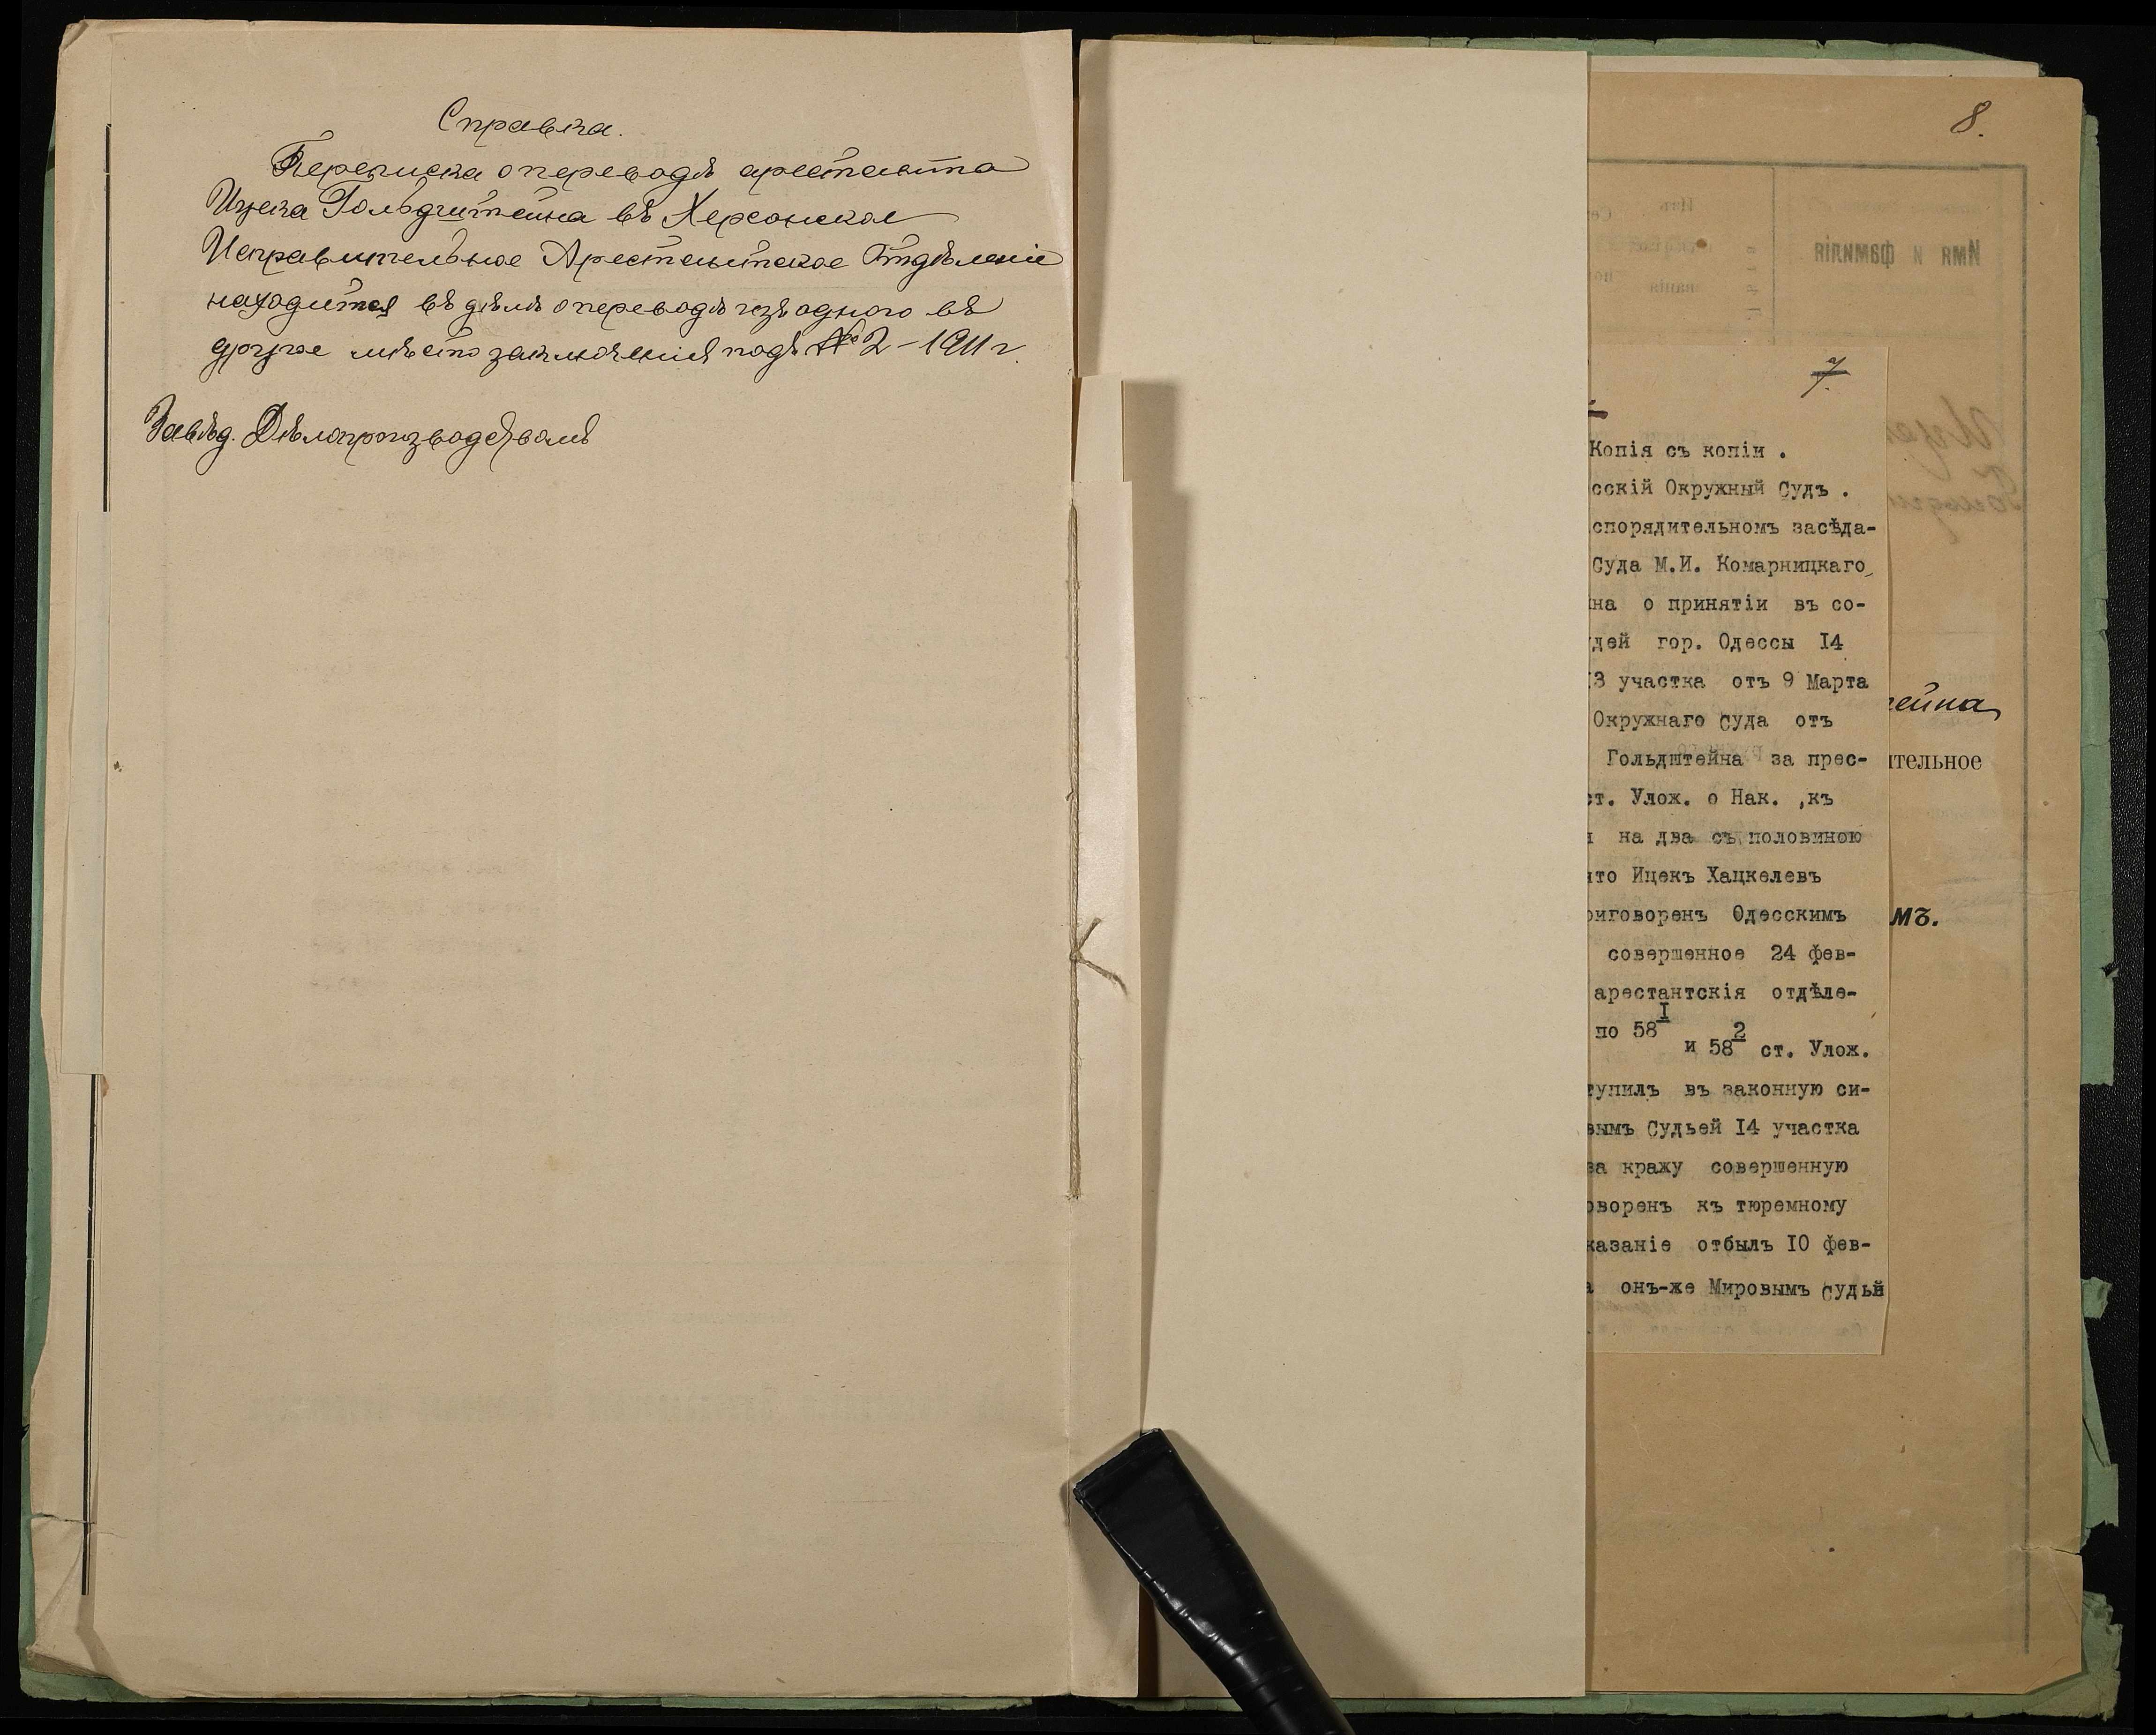 Справка.
Переписка о переводѣ арестанта
Ицека Гольдштейна въ Херсонское
Исправительное Арестантское Отдѣленіе
находится въ дѣлѣ о переводѣ изъ одного въ
другое мѣсто заключенія подъ № 2 - 1911 г.
Завѣд. Дѣлопроизводствомъ
8.
Имя и фамилія
7.
Копія съ копіи .
сскій Окружный Судъ .
спорядительномъ засѣда-
Суда М.И. Комарницкаго,
на о принятіи въ со-
дей гор. Одессы I4
3 участка отъ 9 Марта
Окружнаго Суда отъ
Гольдштейна за прес-
ст. Улож. о Нак. ,къ
на два съ половиною
что Ицекъ Хацкелевъ
риговоренъ Одесскимъ
совершенное 24 фев-
арестантскія отдѣле-
по 58 I и 58 2 ст. Улож.
тупилъ въ законную си-
вымъ Судьей I4 участка
за кражу совершенную
оворенъ къ тюремному
казаніе отбылъ I0 фев-
а онъ-же Мировымъ Судьй
ейна
ительное
мъ.